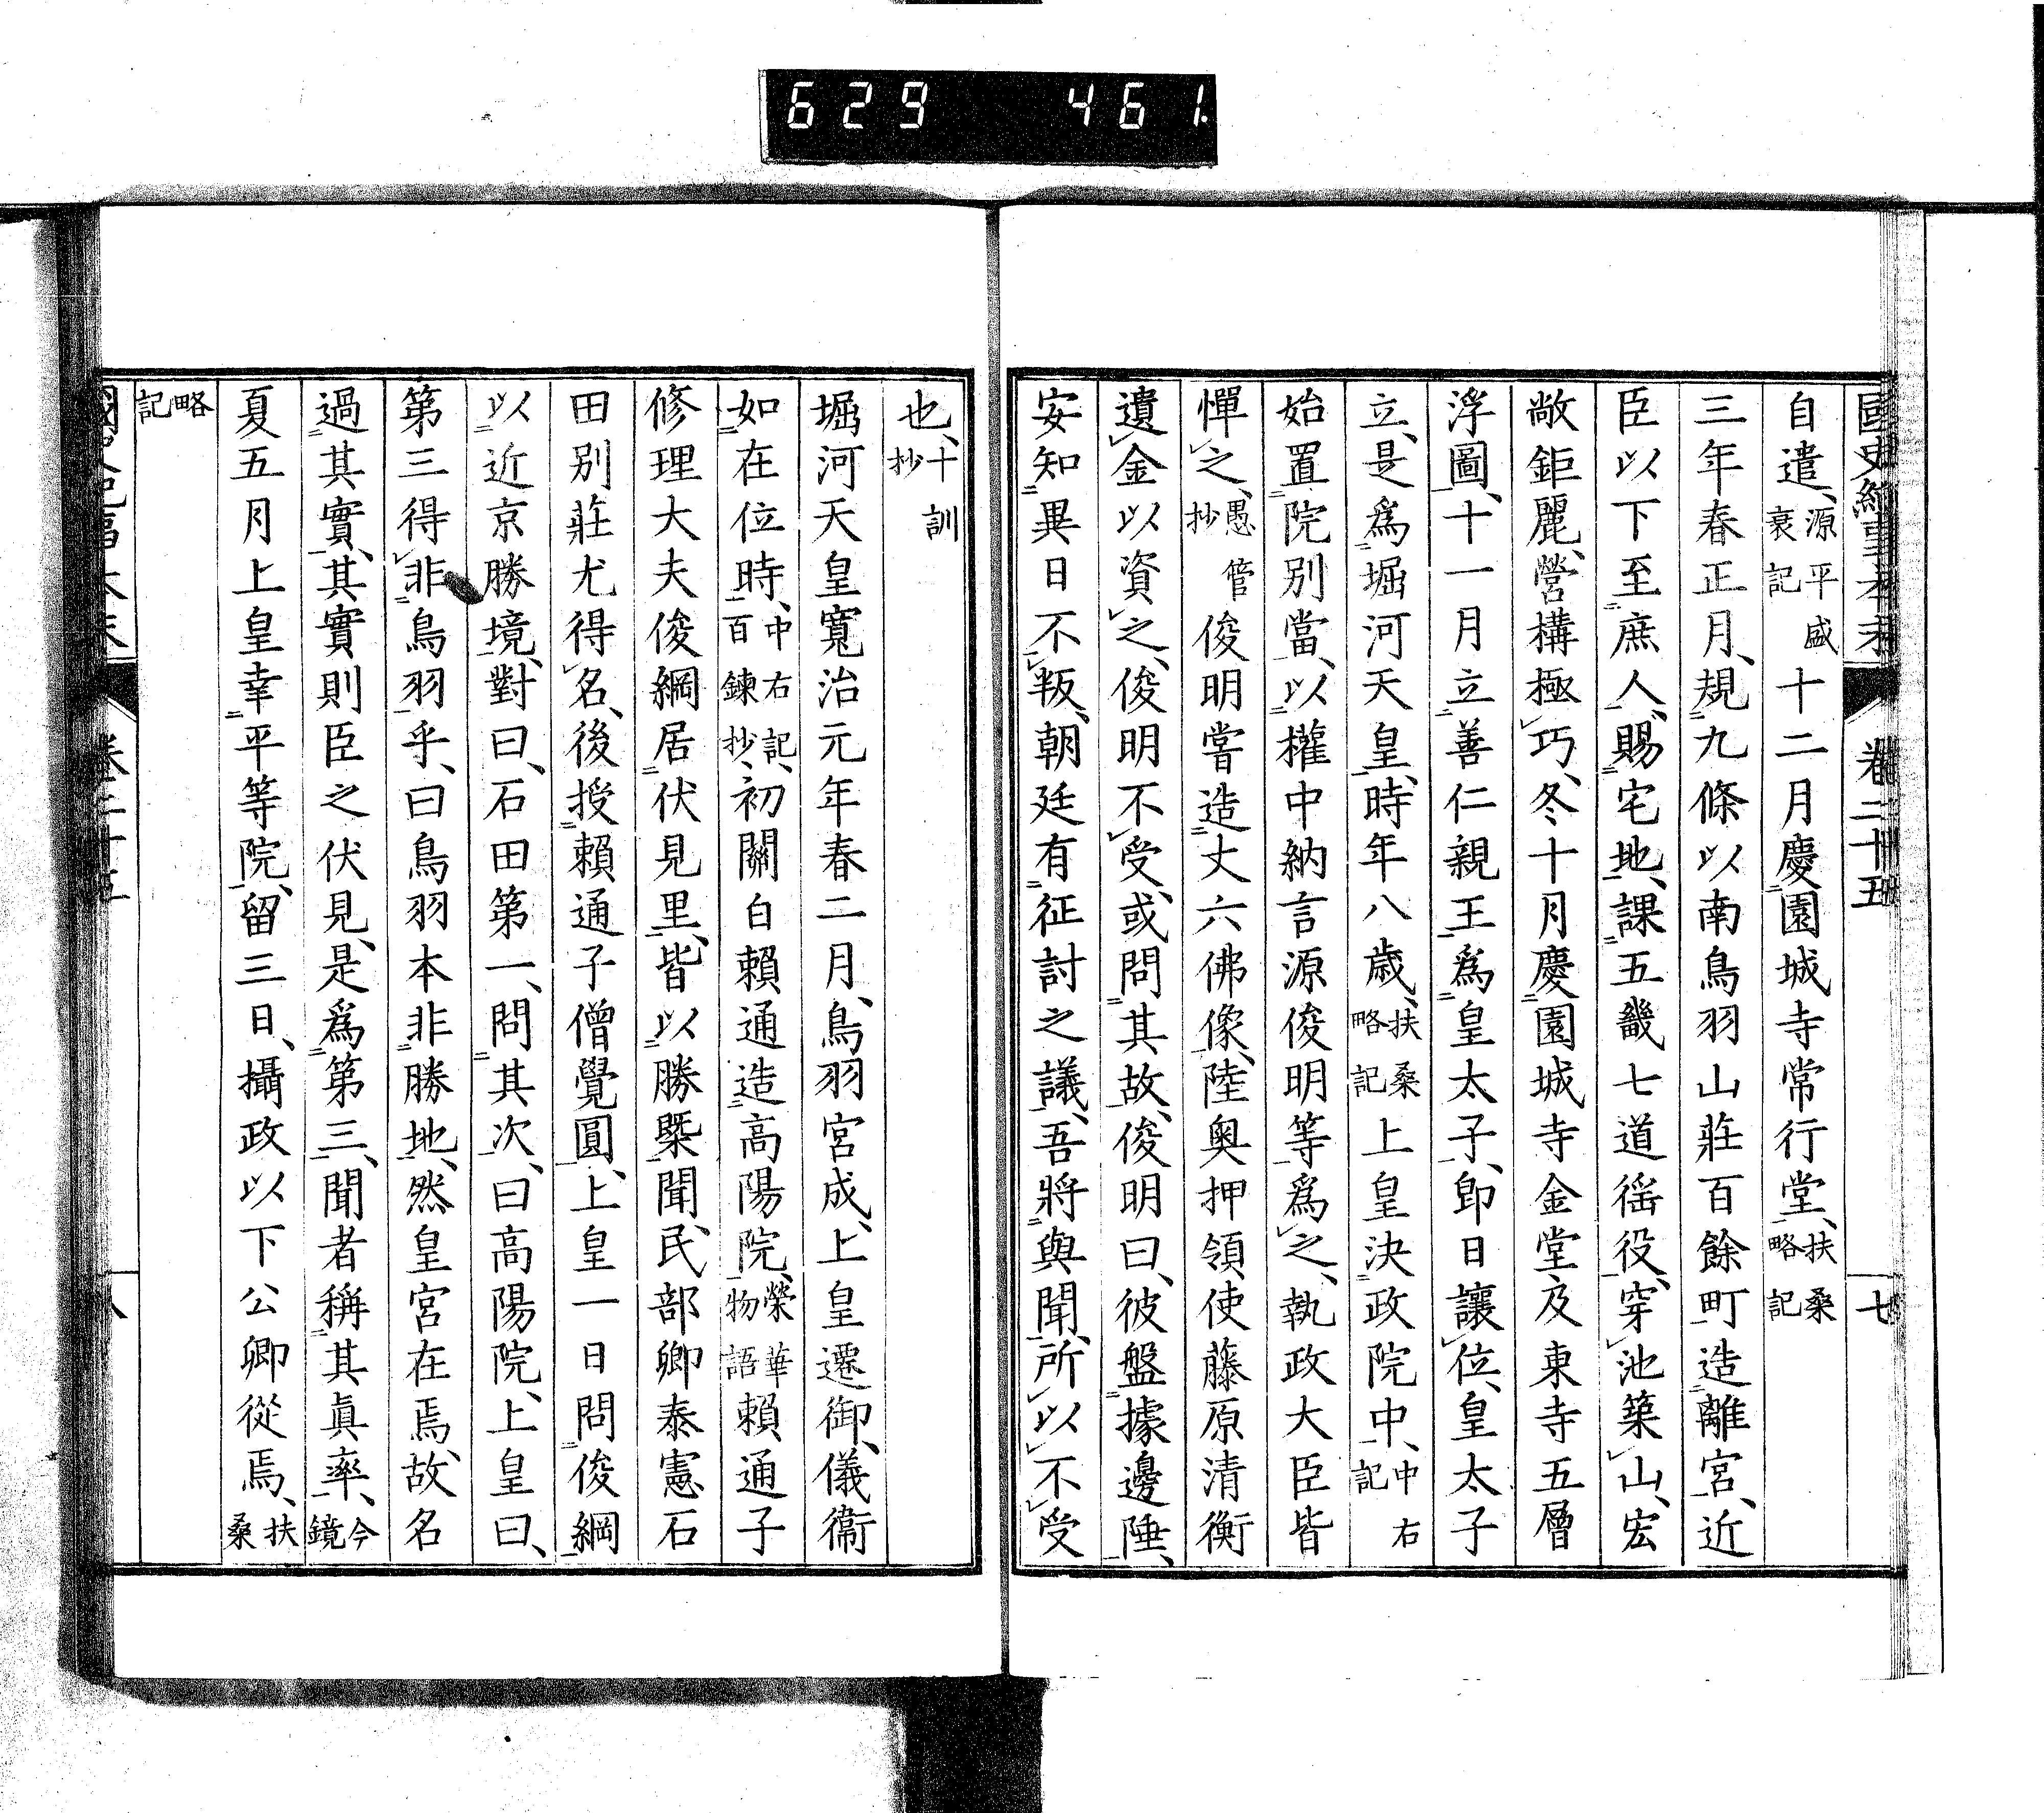 629 461.
國史紀事本末 卷二十五 七
自遣、源平盛衰記十二月慶園城寺常行堂、扶桑略記
三年春正月、規九條以南鳥羽山莊百餘町造離宮、近
臣以下至庶人、賜宅地、課五畿七道徭役、穿池築山、宏
敞鉅麗、營構極巧、冬十月慶園城寺金堂及東寺五層
浮圖、十一月立善仁親王爲皇太子、卽日讓位、皇太子
立、是爲堀河天皇、時年八歲、扶桑略記上皇決政院中、中右記
始置院別當、以權中納言源俊明等爲之、執政大臣皆
憚之、愚管抄俊明嘗造丈六佛像、陸奥押領使藤原清衡
遺金以資之、俊明不受、或問其故、俊明曰、彼盤據邊陲、
安知異日不叛、朝廷有征討之議、吾將與聞、所以不受
也、十訓抄
堀河天皇寬治元年春二月、鳥羽宮成、上皇遷御、儀衞
如在位時、中右記、百鍊抄、初關白賴通造高陽院、榮華物語賴通子
修理大夫俊綱居伏見里、皆以勝槩聞、民部卿泰憲石
田別莊尤得名、後授賴通子僧覺圓、上皇一日問俊綱
以近京勝境、對曰、石田第一、問其次、曰高陽院、上皇曰、
第三得非鳥羽乎、曰鳥羽本非勝地、然皇宮在焉、故名
過其實、其實則臣之伏見、是爲第三、聞者稱其眞率、今鏡
夏五月上皇幸平等院、留三日、攝政以下公卿從焉、扶桑
略記